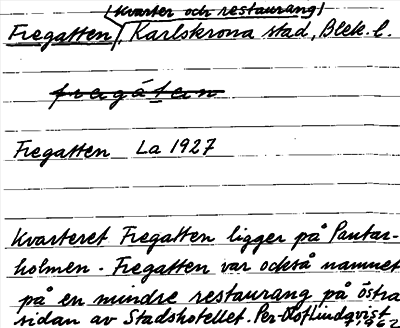 (kvarter och restaurang)
Fregatten, Karlskrona stad, Blek. l.
fregáten
Fregatten La 1927
Kvarteret Fregatten ligger på Pantar-
holmen. Fregatten var också namnet
på en mindre restaurang på östra
sidan av Stadshotellet. Per-Olof Lindqvist
1962